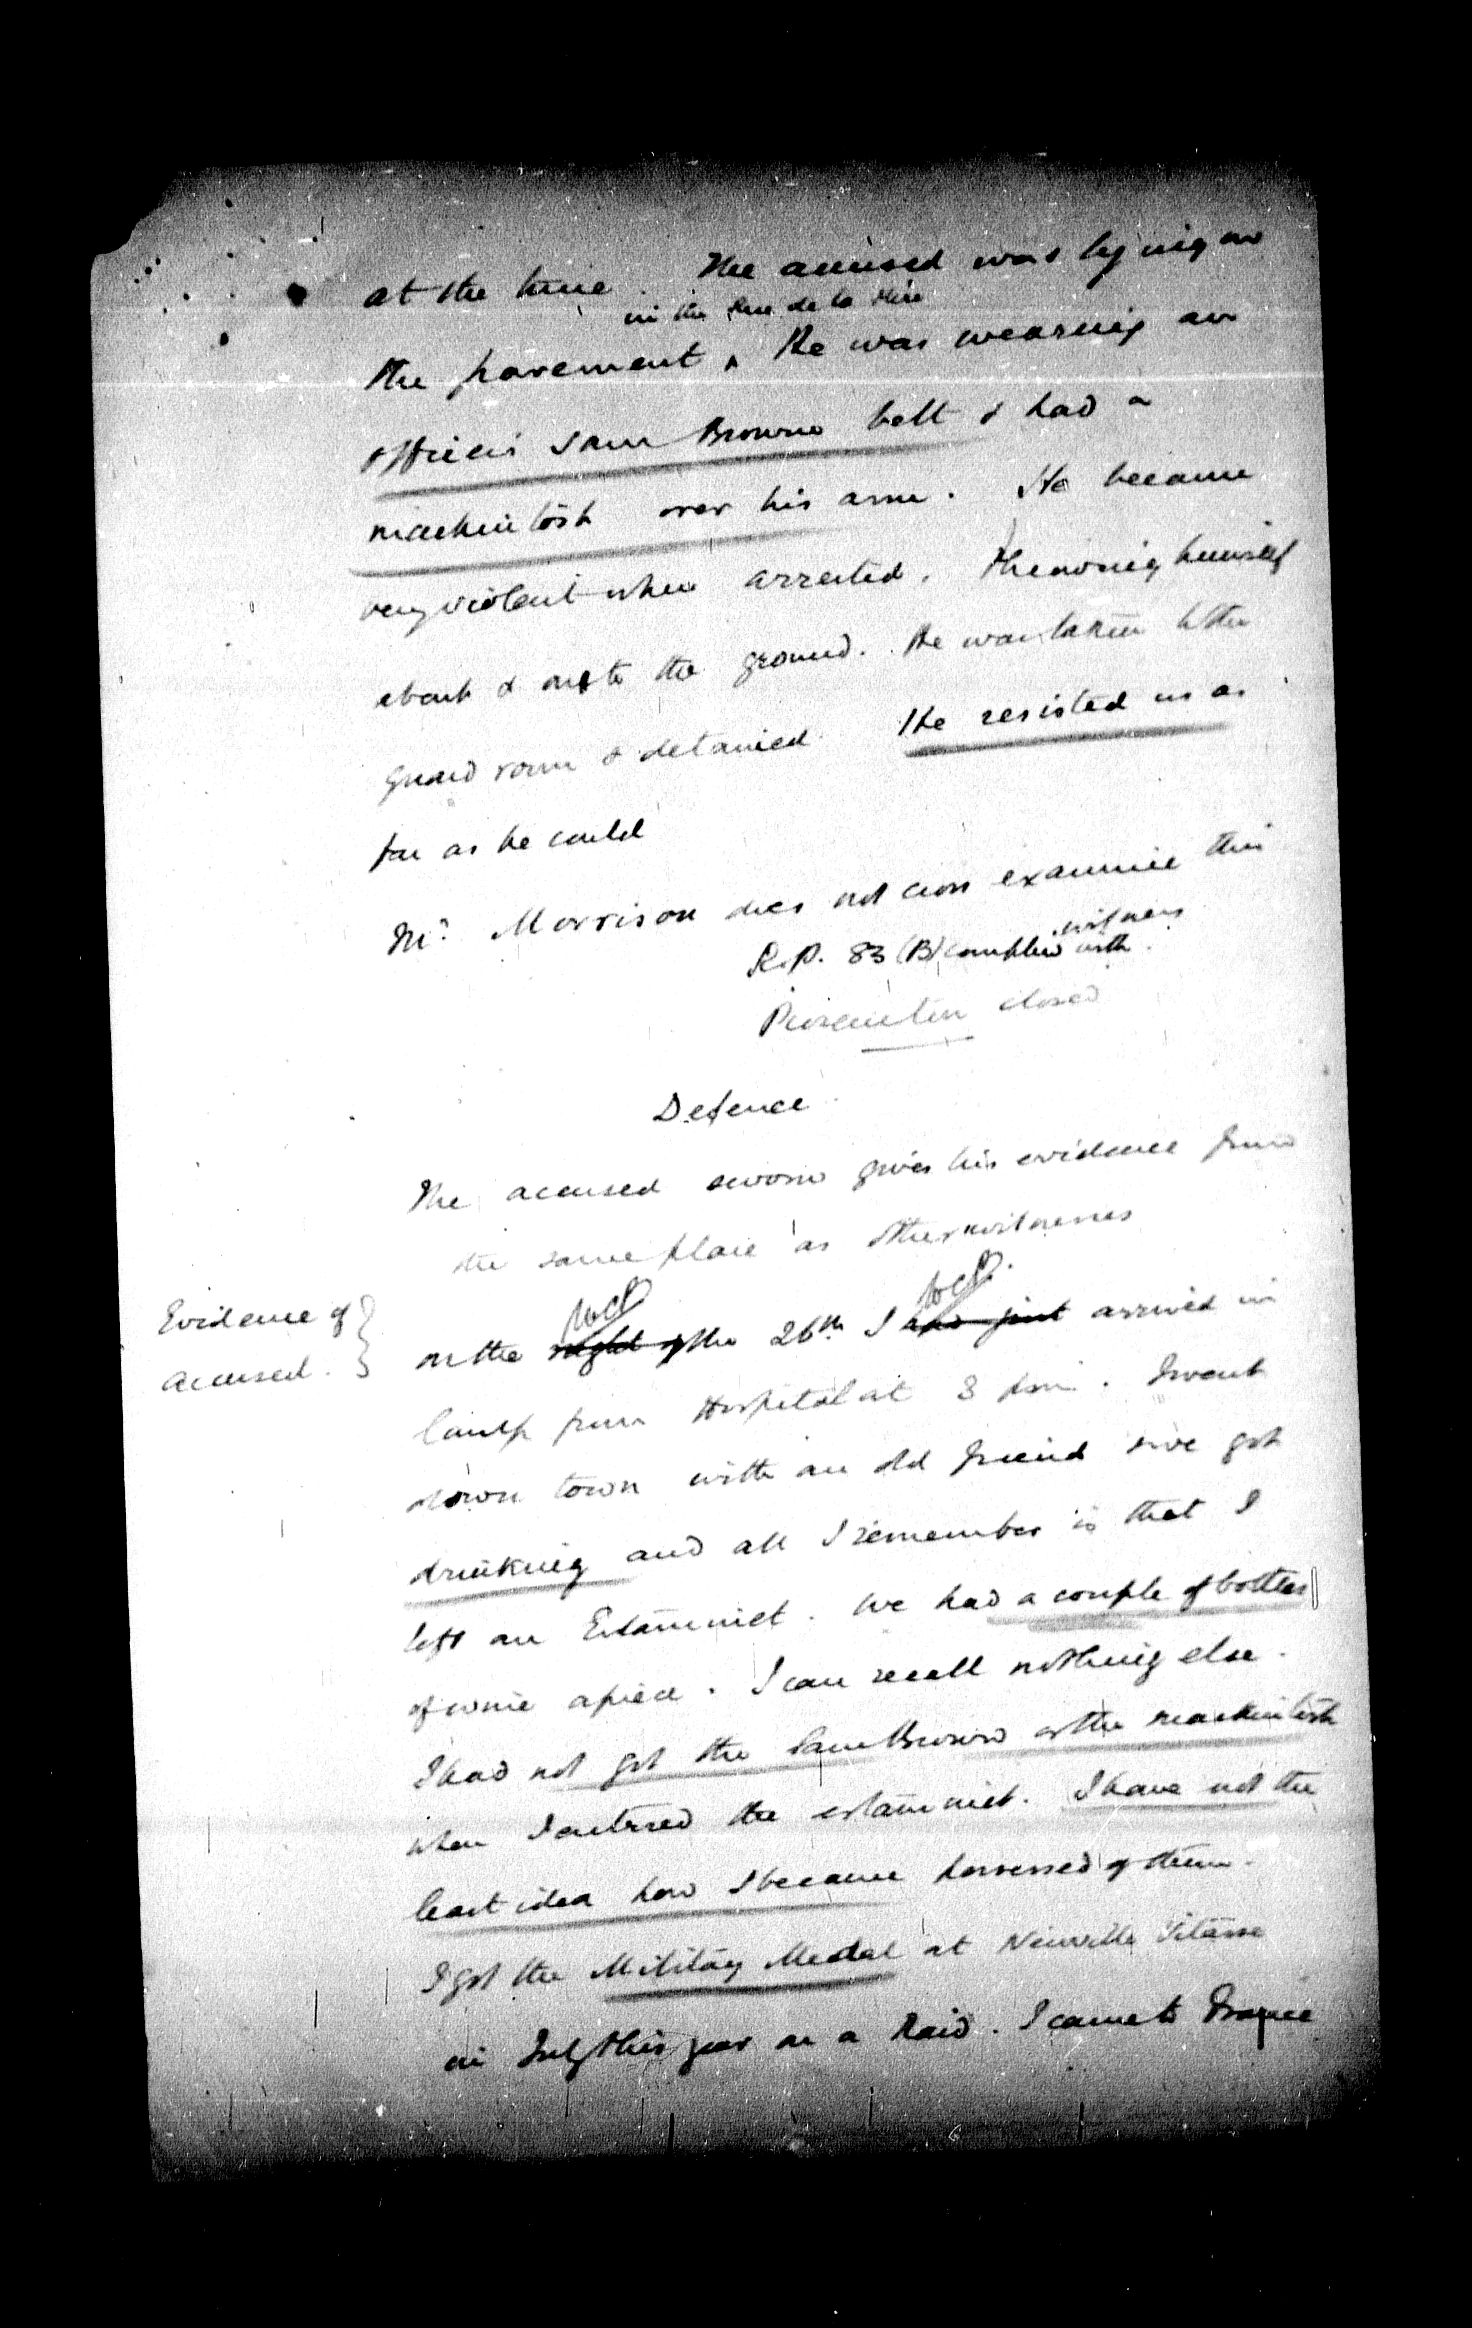 at the time. The accused was lying on
in the Rue de la
the pavement, He was wearing an
officer's Sam Browne belt & had a
mackintosh over his arm. He became
very violent when arrested. Throwing himself
about & onto the ground. He was taken to the
guard room & detained He resisted us as
far as he could
Mr. Morrison does not cross examine this
witness
R.P. 83 (B) complied with.
Prosecution closed
Defence
The accused sworn gives his evidence from
the same place as other witnesses
Evidence of
accused.
on the night of the 26th I had just arrived in
Camp from Hospital at 3 pm. I went
down town with an old friend & we got
drinking and all I remember is that I
left an Estaminet. We had a couple of bottles
of wine apiece. I can recall nothing else.
I had not got the Sam Browne or the mackintosh
when I entered the estaminet. I have not the
least idea how I became possessed of them.
I got the Military Medal at Neuville Vitasse
in July this year on a Raid. I came to France